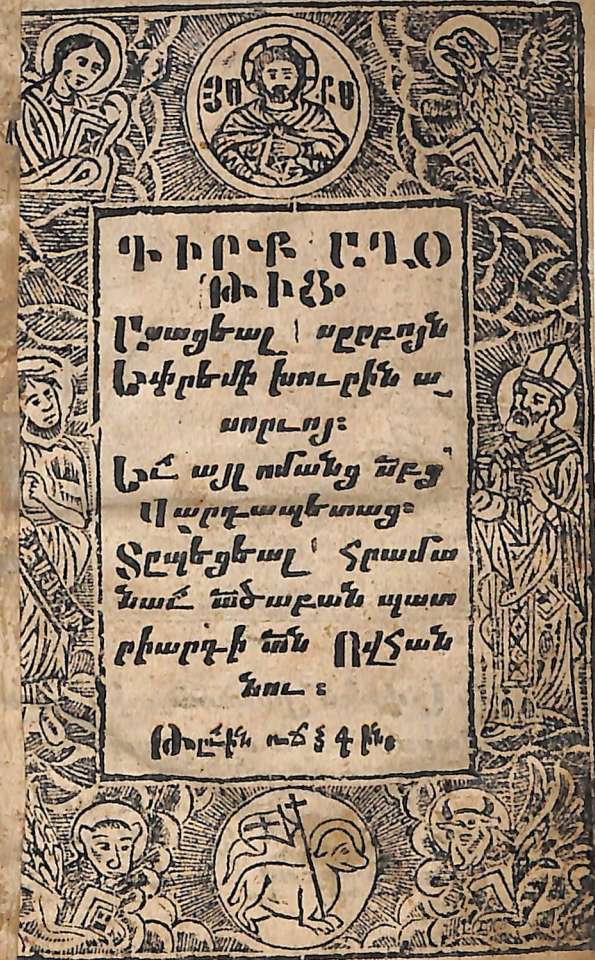 ՅՍ ՔՍ
ԳԻՐՔ ԱՂՕ
ԹԻՑ.
Ասացեալ ՚ի սըրբոյն
Եփրեմի խուրին ա
սորւոյ։
Եւ այլ ոմանց սբց
Վարդապետաց։
Տըպեցեալ ՚ի Հրամա
նաւ ածաբան պատ
րիարգի տն Յովհան
նու ։
Թւին ռճձդ ին.